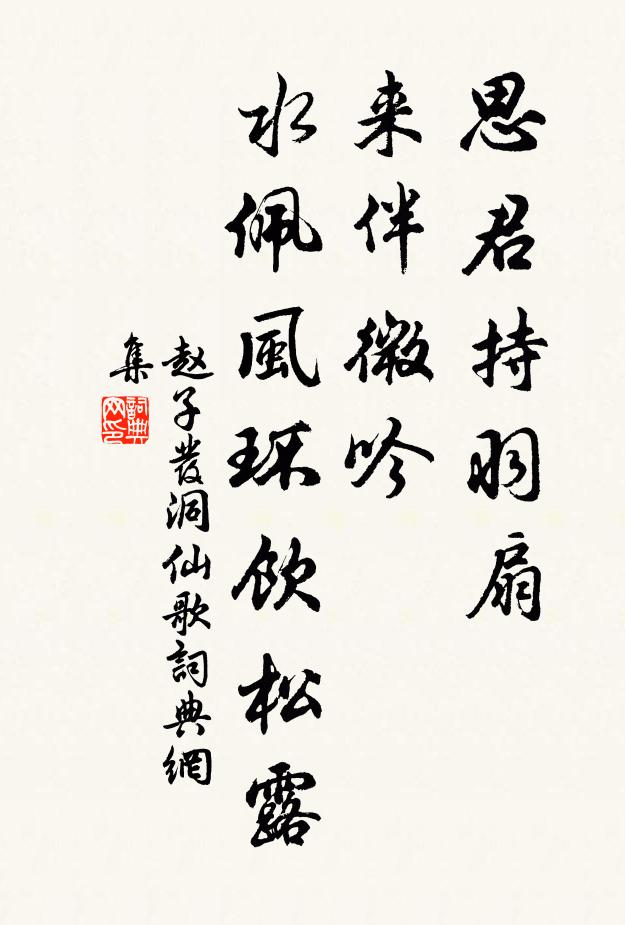 思君持羽扇
来伴微吟
水佩風环飲松露
赵子發洞仙歌詞典網
集
詞典
网印